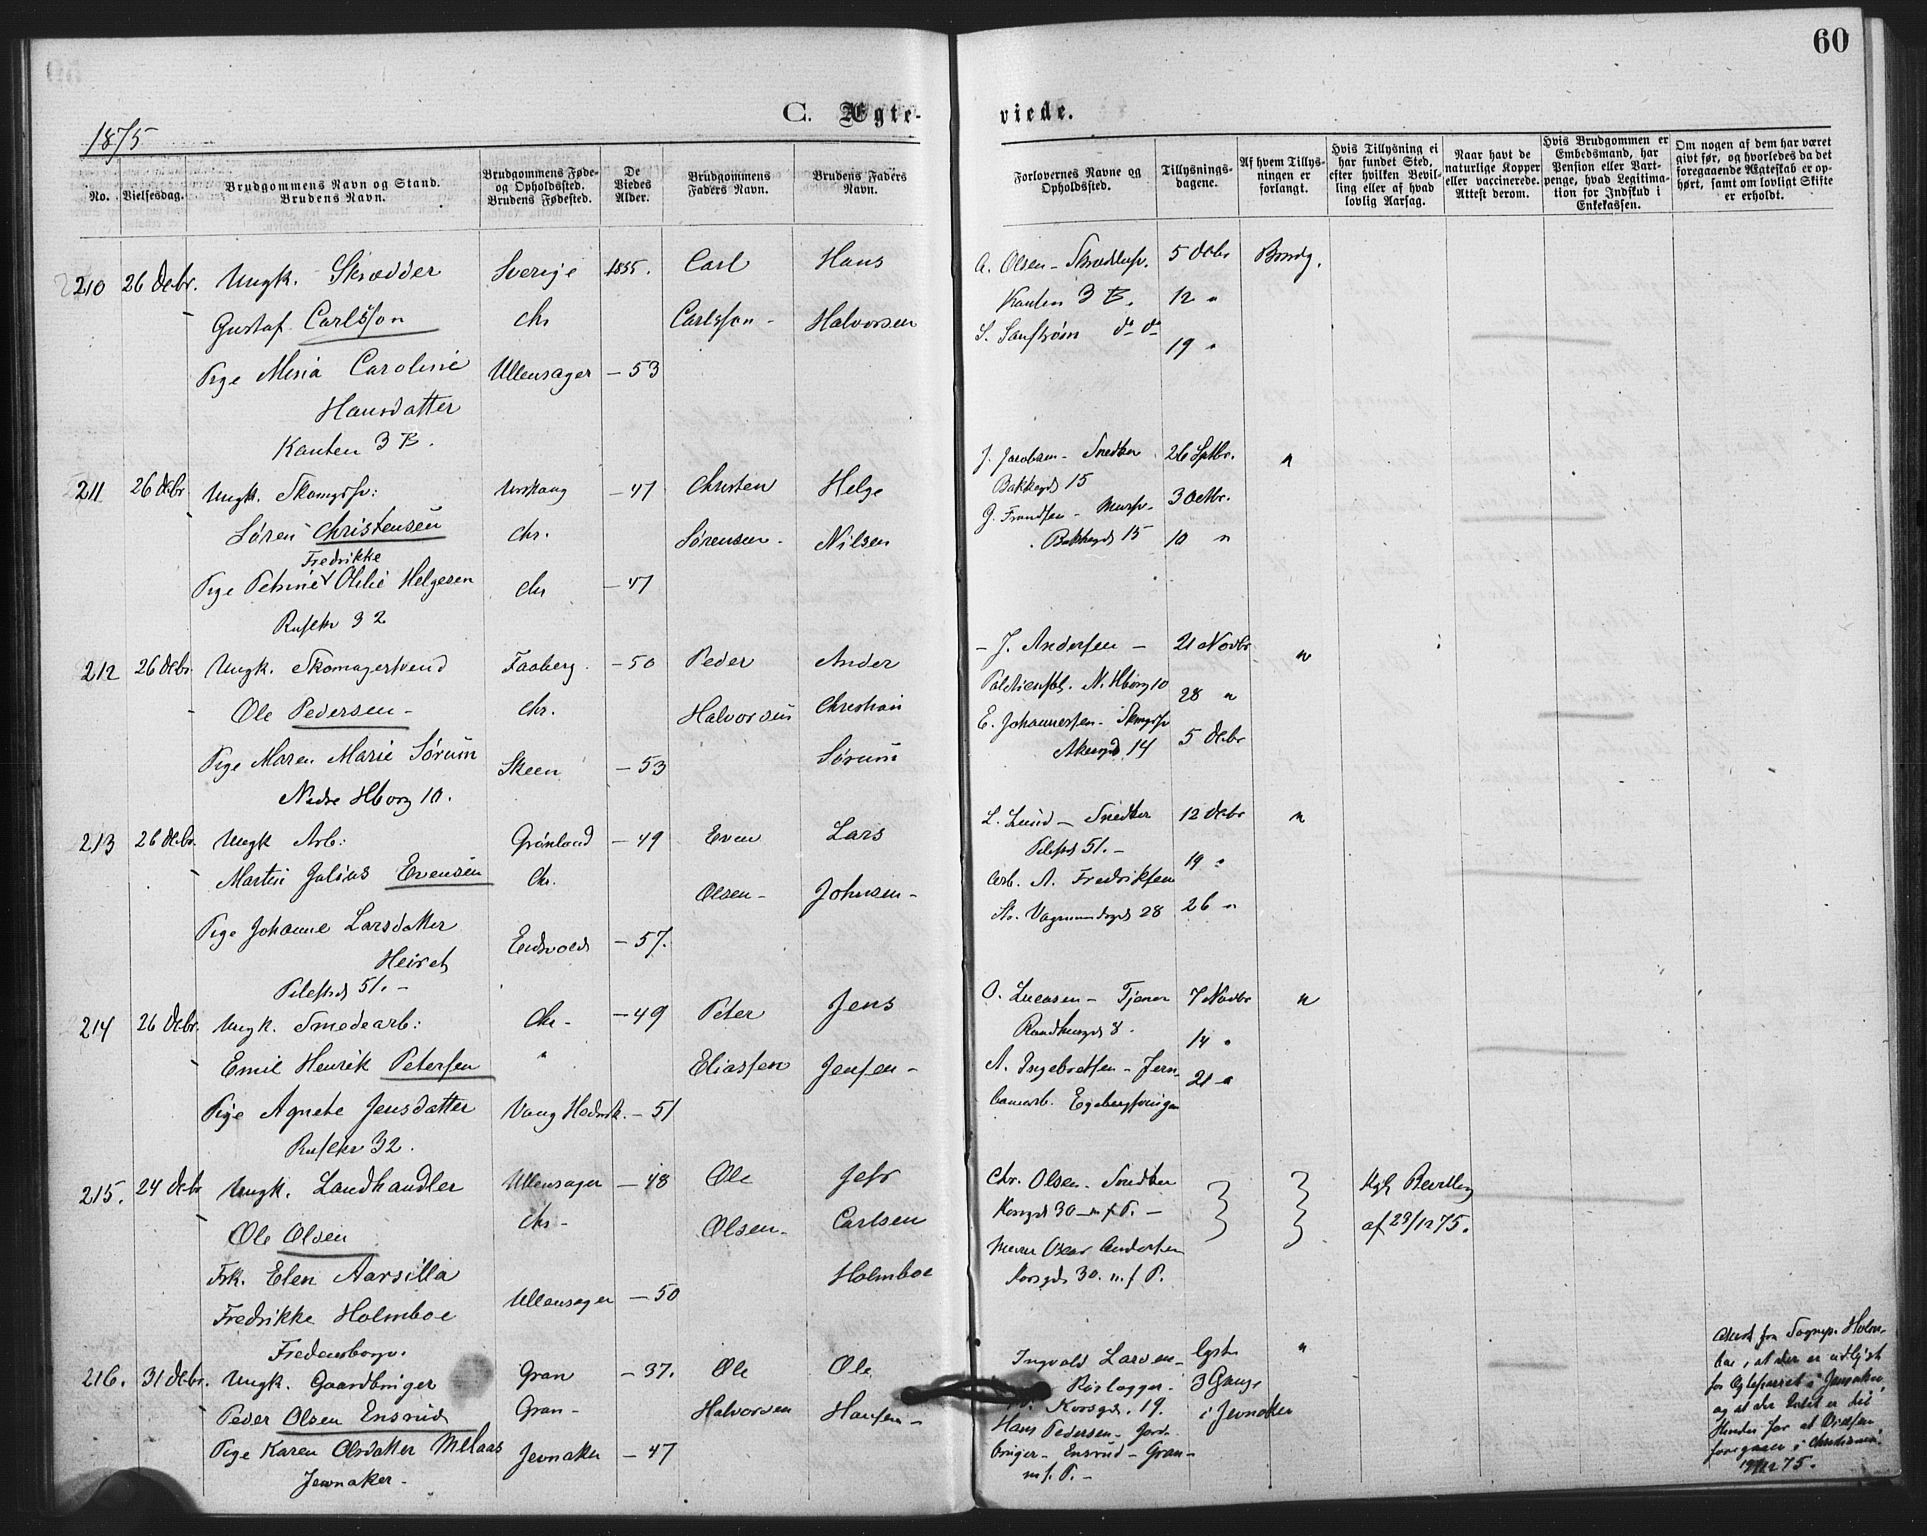 60
C. Ægte-
viede.
1875
No.
Vielsesdag.
Brudgommens Navn og Stand.
Brudens Navn.
Brudgommens Føde-
og Opholdssted.
Brudens Fødested.
De
Viedes
Alder.
Brudgommens
Faders Navn.
Brudens Faders
Navn.
Forlovernes Navne og
Opholdssted.
Tillysnings-
dagene.
Af hvem Tillys-
ningen er
forlangt.
Hvis Tillysning ei
har fundet Sted,
efter hvilken Bevil-
ling eller af hvad
lovlig Aarsag.
Naar havt de
naturlige Kopper
eller vaccinerede.
Attest derom.
Hvis Brudgommen er
Embedsmand, har
Pension eller Vart-
penge, hvad Legitima-
tion for Indskud i
Enkekassen.
Om nogen af dem har været
givt før, og hvorledes da det
foregaaende Ægteskab er op-
hørt, samt om lovligt Skifte
er erholdt.
210 26 Debr. Ungk. Skrædder Sverige 1855. Carl Hans A. Olsen - 5 Debr Brudg.
Gustaf Carlsson Chr Carlsson - Halvorsen Kanten 3 B. 12 "
Pige Mina Caroline Ullensager - 53 19 "
Hansdatter
Kanten 3 B.
211 26 Debr Ungk. Skomgsv: Urskoug - 47 Christen Helge J. Jacobsen - Snedker 26 Septbr. "
Søren Christensen Chr. Sørensen - Nilsen Bakkegd 15 3 Octbr.
Fredrikke G. Frandsen - Mursv.
Pige Petrine Olelie Helgesen Chr - 47 Bakkegd 15 10 "
Rusekr 32
212 26 Debr Ungk. Skomagersvend Faaberg - 50 Peder Ander - J. Andersen - 21 Novbr "
Ole Pedersen - Chr. Halvorsen Christian N. Hborg 10 28 "
Pige Maren Marie Sørum Skeen - 53 Sørum E. Johannessen - Skmgsv
Nedre Hborg 10. Akersgd 14 5 Debr
213 26 Debr. Ungk Arb: Grønland - 49 Even Lars L. Lund - Snedker 12 Debr "
Martin Julius Evensen Chr. Olsen - Johnsen - Pilestrd 51. - 19 "
Pige Johanne Larsdatter Eidsvold - 57. Arb. A. Fredriksen
St. Vognmandsgd 28 26 "
Pilestrd 51. -
214 26 Debr. Ungk. Smedearb: Chr - - 49 Peter Jens O. Lucasen - Tjener 7 Novbr "
Emil Henrik Petersen " Eliassen Jensen - 14 "
Pige Agnete Jensdatter Vang Hedmk. - 51 A. Ingebretsen - Jern- 21 "
Rusekr 32. banearb. Egebergsveigen
215. 24 Debr Ungk. Landhandler Ullensager - 48 Ole Jess Chr. Olsen - Snedker Kgl Bevilling
Ole Olsen Chr - Olsen - Carlsen Korsgd 30 - m f P. - af 23/12 75.
Frk. Elen Aarsilla Holmboe Murer Oscar Andersen
Fredrikke Holmboe Ullensager - 50 Korsgd 30. m f P.
Fredensborgv.
216. 31 Debr. Ungk. Gaardbruger Gran - 37. Ole Ole Ingvald Larsen - lyst "
Peder Olsen Ensrud Gran - Halvorsen Hansen - Rørlægger - 3 Gange
Pige Karen Olsdatter Melaas Jevnaker - 47 Korsgd. 19. i Jevnaker
Jevnaker - Hans Pedersen - Jord-
bruger - Ensrud - Gran -
m f. P. -
Attest fra Sognep. Holm-
boe, at der er udlyst
for Egteparret i Jevnaker,
og at der Intet er til
Hinder for at Vielsen
foregaaer i Christiania.
75.